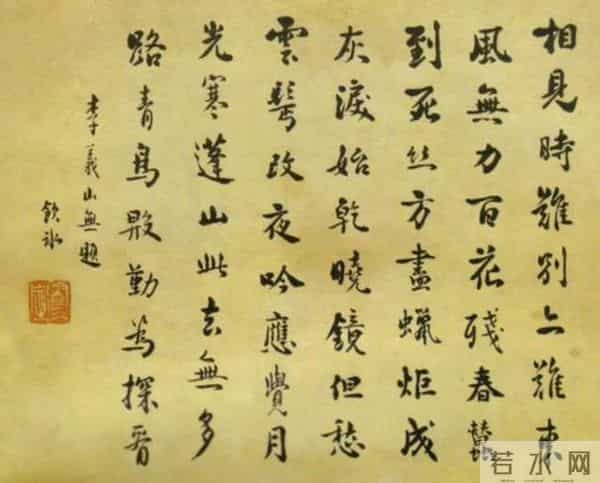 相見時難別亦難東
風無力百花殘春蠶
到死丝方盡蠟炬成
灰淚始乾曉鏡但愁
雲鬢改夜吟應覺月
光寒蓬山此去無多
路青鳥殷勤為探看
李義山無題
飲冰
若水网